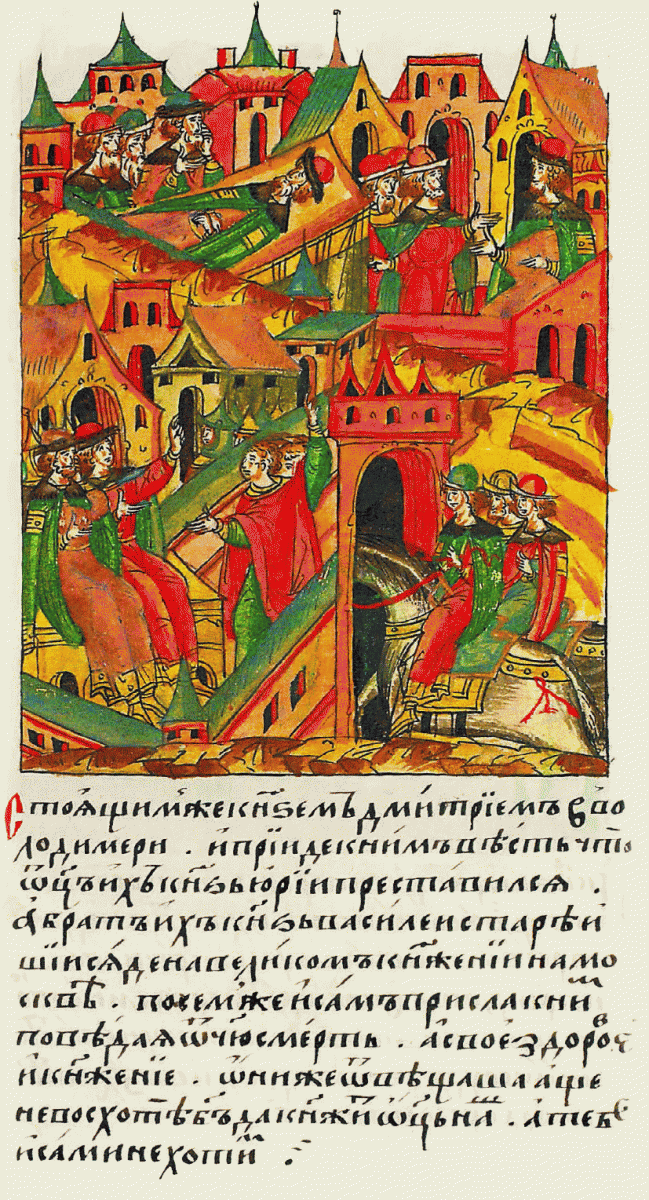 Стоящимъже кнѕемъ дмитрїемъ вво
лодимери . ипрїидекнимъ вѣсть что
ѿцъ ихъ кнѕь юрїи преставился .
а братъ ихъ кнѕь василеи старѣи
шїи сяде на великомъ кнженїи намо
сквѣ . посемже исамъ присла кни
повѣдая ѿчю смерть . асвое здоровье
икнженїе . ѡниже ѿвѣщаша аще
невосхотѣ бгъ да кнжи ѿцъ нашъ . атебѣ
исами не хотимъ .